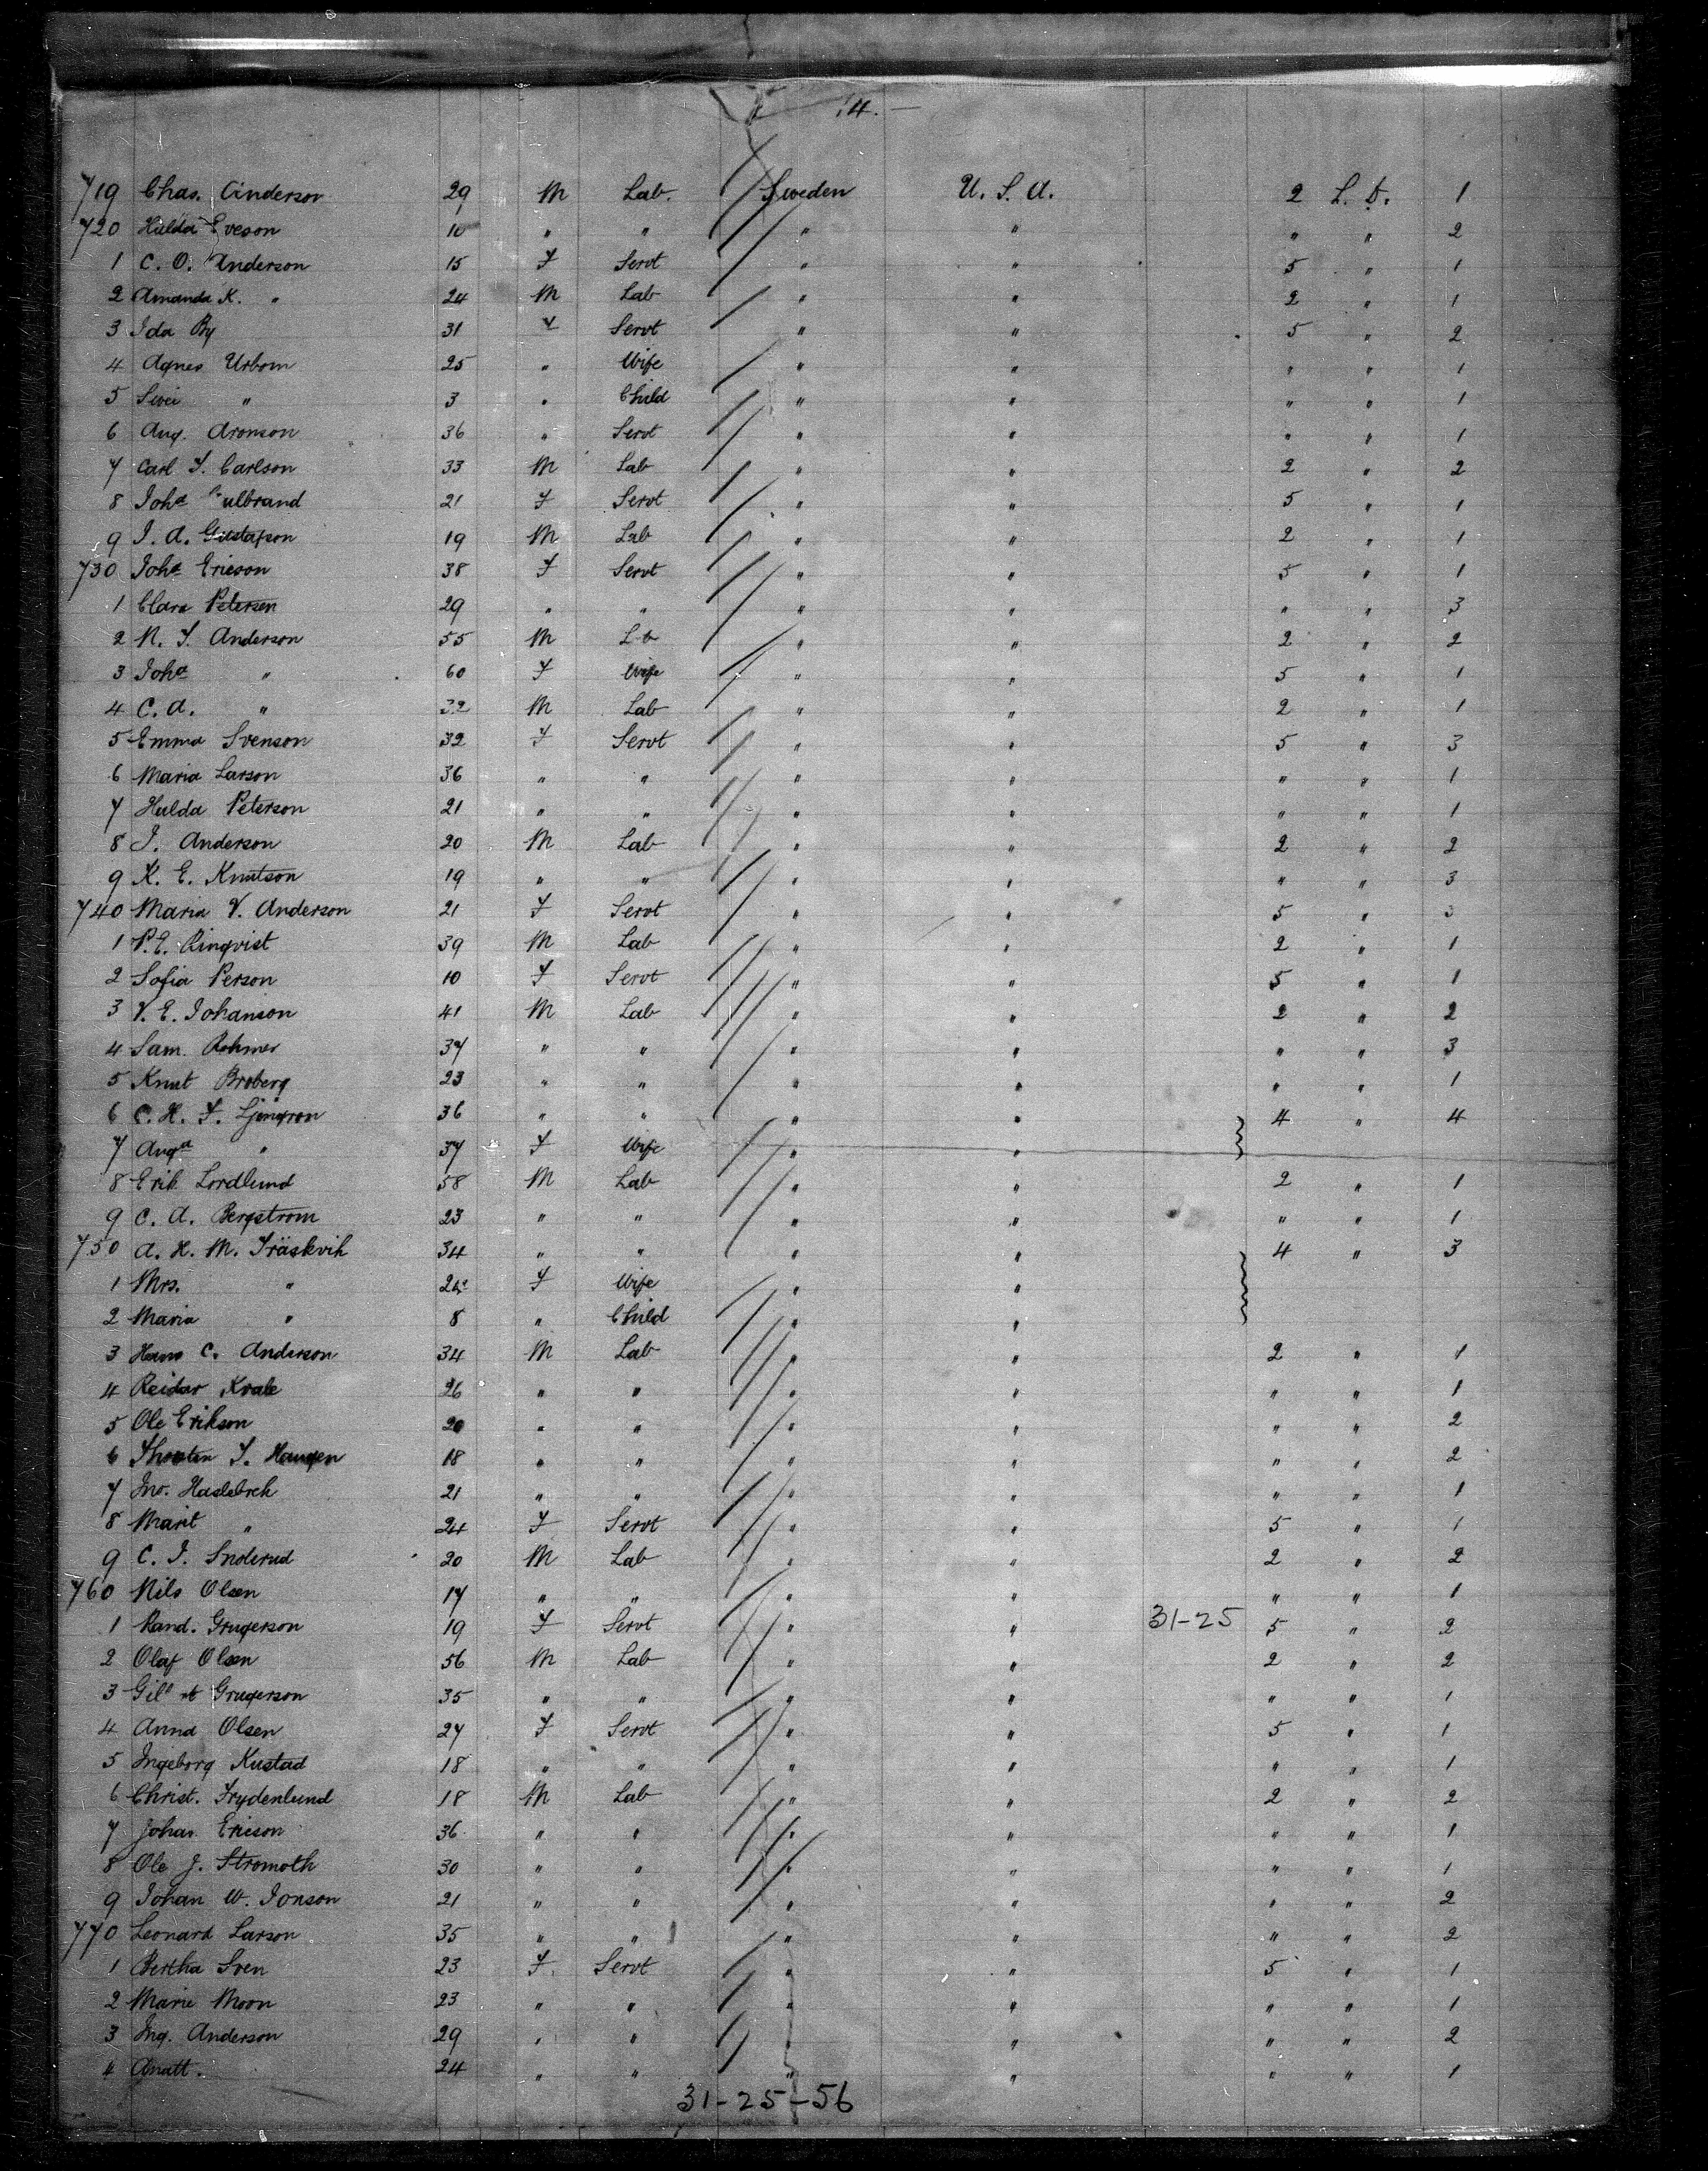 14.
719 Chas. Anderson 29 M Lab. Sweden U. S. A. 2 L. D. 1
720 Hulda Eveson 10 " " " " " " 2
1 C. O. Anderson 15 F Servt " " 5 " 1
2 Amanda K. " 24 M Lab " " 2 " 1
3 Ida By 31 F Servt " " 5 " 2
4 Agnes Urbom 25 " Wife " " " " 1
5 Sivei " 3 " Child " " " " 1
6 Aug. Aronson 36 " Servt " " " " 1
7 Carl F. Carlson 33 M Lab " " 2 " 2
8 Joha ulbrand 21 F Servt " " 5 " 1
9 J. A. Gustafson 19 M Lab " " 2 " 1
730 Joha Ericson 38 F Servt " " 5 " 1
1 Clara Petersen 29 " " " " " " 3
2 N. F. Anderson 55 M L b " " 2 " 2
3 Joha " 60 F Wife " " 5 " 1
4 C. A. " 32 M Lab " " 2 " 1
5 Emma Svenson 32 F Servt " " 5 " 3
6 Maria Larson 36 " " " " " " 1
7 Hulda Peterson 21 " " " " " " 1
8 J. Anderson 20 M Lab " " 2 " 2
9 K. E. Knutson 19 " " " " " " 3
740 Maria V. Anderson 21 F Servt " " 5 " 3
1 P. E. Ringvist 39 M Lab " " 2 " 1
2 Sofia Person 10 F Servt " " 5 " 1
3 V. E. Johanson 41 M Lab " " 2 " 2
4 Sam. Rohmer 37 " " " " " " 3
5 Knut Broberg 23 " " " " " " 1
6 C. H. F. Ljungron 36 " " " " 4 " 4
7 Auga " 37 F Wife " "
8 Erik Lordlund 58 M Lab " " 2 " 1
9 C. A. Bergstrom 23 " " " " " " 1
750 A. H. M. Träskvik 34 " " " " 4 " 3
1 Mrs. " 24 F Wife " "
2 Maria " 8 " Child " "
3 Hans C. Anderson 34 M Lab " " 2 " 1
4 Reidar Kvale 26 " " " " " " 1
5 Ole Erikson 20 " " " " " " 2
6 Thorsten T. Haugen 18 " " " " " " 2
7 Jno. Haslebrek 21 " " " " " " 1
8 Marit " 24 F Servt " " 5 " 1
9 C. J. Snderud 20 M Lab " " 2 " 2
760 Nils Olsen 17 " " " " " " 1
1 Rand. Grugerson 19 F Servt " " 31-25 5 " 2
2 Olaf Olsen 56 M Lab " " 2 " 2
3 Gilbt Grugerson 35 " " " " " " 1
4 Anna Olsen 27 F Servt " " 5 " 1
5 Ingeborg Kustad 18 " " " " " " 1
6 Christ. Frydenlund 18 M Lab " " 2 " 2
7 Johan Ericson 36 " " " " " " 1
8 Ole J. Stromoth 30 " " " " " " 1
9 Johan W. Jonson 21 " " " " " " 2
770 Leonard Larson 35 " " " " " " 2
1 Bertha Sven 23 F. Servt " " 5 " 1
2 Marie Moon 23 " " " " " " 1
3 Ing. Anderson 29 " " " " " " 2
4 Anatt. 24 " " " " " " 1
31-25-56